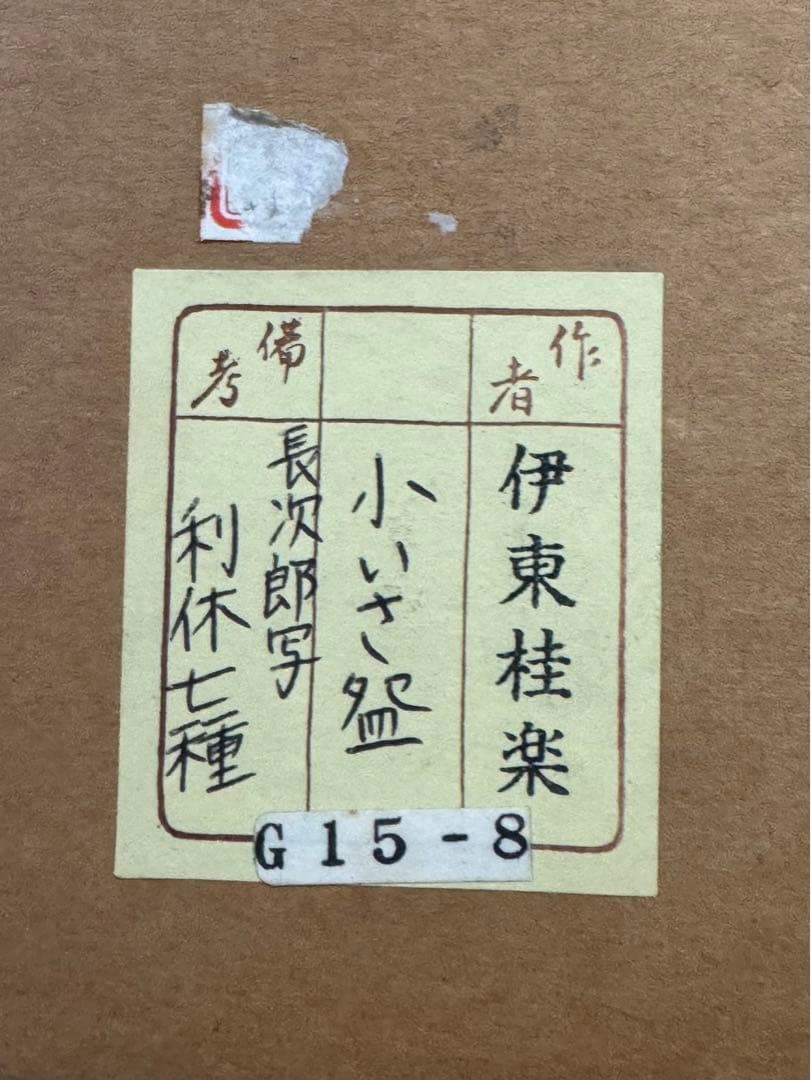 作者
伊東桂楽
小いさ盌
備考
長次郎写
利休七種
G15-8